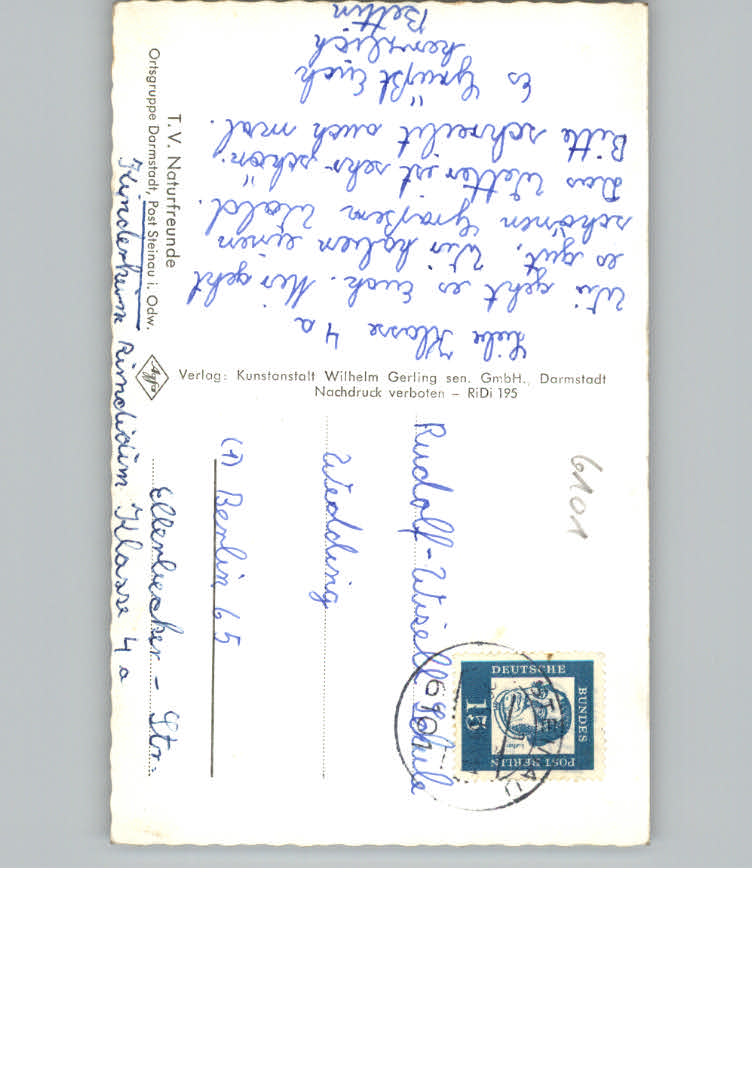 Liebe Klasse 4a
Wie geht es Euch. Mir geht
es gut. Wir haben einen
schönen Großen Wald.
Das Wetter ist sehr schön.
Bitte schreibt auch mal.
Es Grüßt Euch
herzlich
Bettin
T. V. Naturfreunde
Ortsgruppe Darmstadt, Post Steinau i. Odw.
Kinderheim
Klasse 4a
Agfa
Verlag: Kunstanstalt Wilhelm Gerling sen. GmbH., Darmstadt
Nachdruck verboten – RiDi 195
6101
DEUTSCHE
BUNDES
POST BERLIN
15
Luther
6101
Rudolf-Wisell Schule
Wedding
(1) Berlin 65
Ellerbecker - Str.